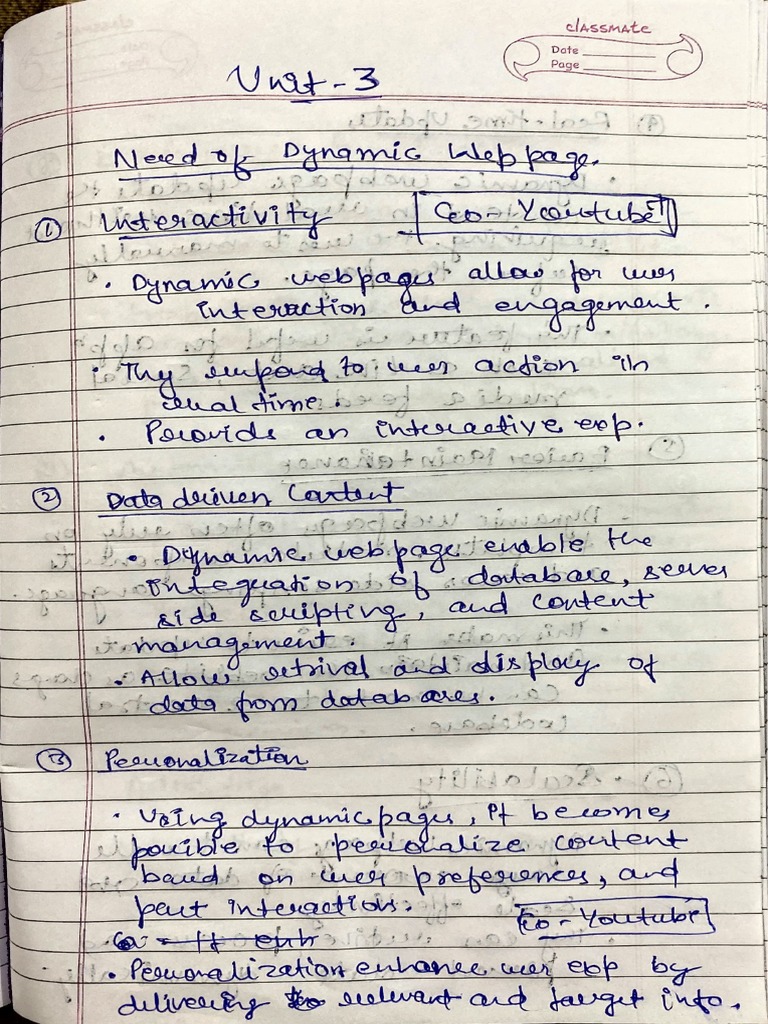 classmate
Date
Page
Unit-3
Need of Dynamic Web page.
① Interactivity
Ex - Youtube
• Dynamic webpages allow for user
interaction and engagement.
• They respond to user action in
real time.
• Provids an interactive exp.
② Data driven Content
• Dynamic web page enable the
integration of database, server
side scripting, and content
management.
• Allow retrival and display of
data from databases.
③ Personalization
• Using dynamic pages, it becomes
possible to personalize content
based on user preferences, and
past interactions.
Ex - Youtube
• Personalization enhance user exp by
delivering relevant and target info.